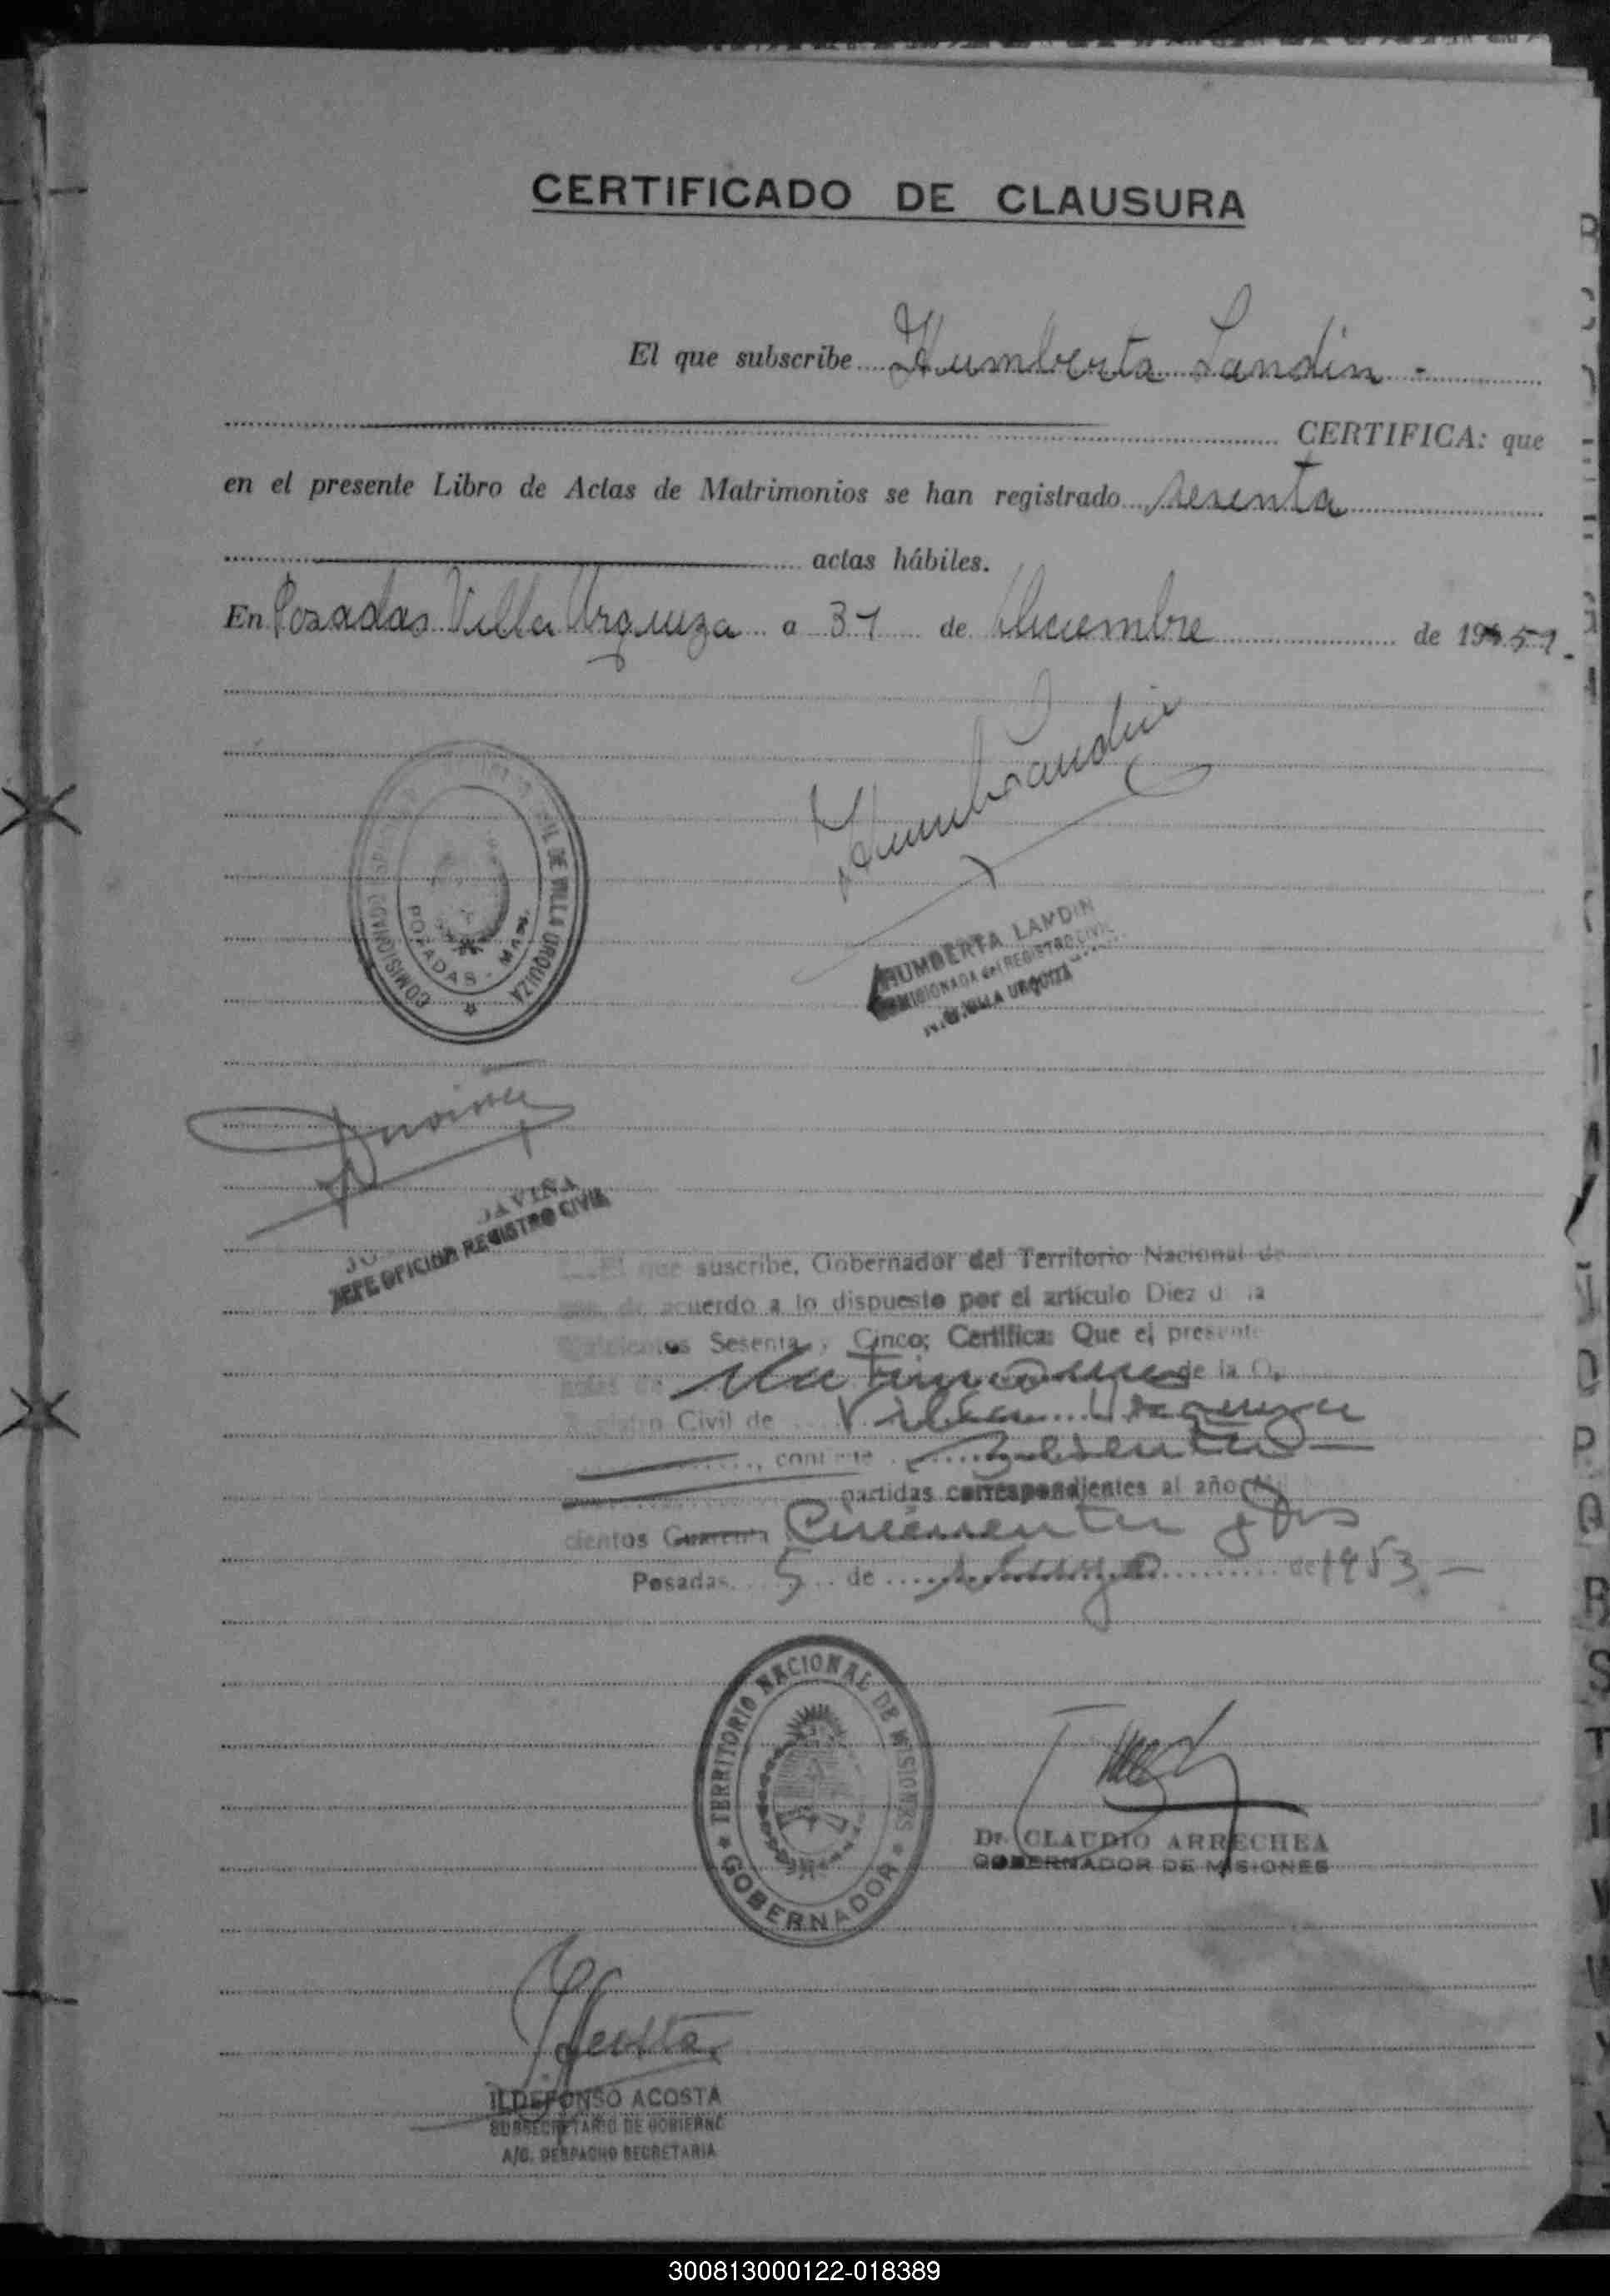 CERTIFICADO DE CLAUSURA
El que subscribe Humberta Landin -
CERTIFICA: que
en el presente Libro de Actas de Matrimonios se han registrado sesenta
actas hábiles.
En Posadas Villa Urquiza a 31 de Diciembre de 195
COMISIONADO DE VILLA URQUIZA
POSADAS - MNES.
HUMBERTA LANDIN
COMISIONADA del REGISTRO CIVIL
VILLA URQUIZA
DAVIÑA
JEFE OFICINA REGISTRO CIVIL
El que suscribe, Gobernador del Territorio Nacional de
de acuerdo a lo dispuesto por el artículo Diez de la
Sesenta y Cinco; Certifica: Que el presente
Matrimonios de la
Registro Civil de Villa Urquiza
contiene Sesenta
partidas correspondientes al año
cientos Cuarenta Cincuenta y dos
Posadas, 5 de Mayo de 1953 -
TERRITORIO NACIONAL DE MISIONES
GOBERNADOR
Dr. CLAUDIO ARRECHEA
GOBERNADOR DE MISIONES
Acosta
ILDEFONSO ACOSTA
SUBSECRETARIO DE GOBIERNO
A/C. DESPACHO SECRETARIA
300813000122-018389